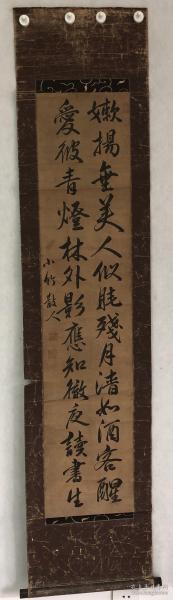 嫩楊垂美人似眠殘月清如酒客醒
愛彼青燈林外影應知徹夜讀書生
小竹散人